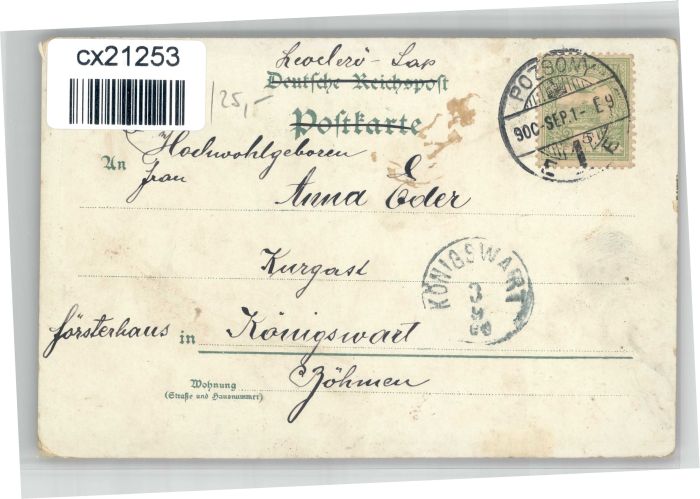 cx21253
25,-
Levelező-Lap
Deutsche Reichspost
Postkarte
POZSONY
900 SEP. 1 - E 9
Hochwohlgeboren
An Frau
Anna Eder
Kurgast
KÖNIGSWART
försterhaus in Königswart
Böhmen
Wohnung
(Straße und Hausnummer)